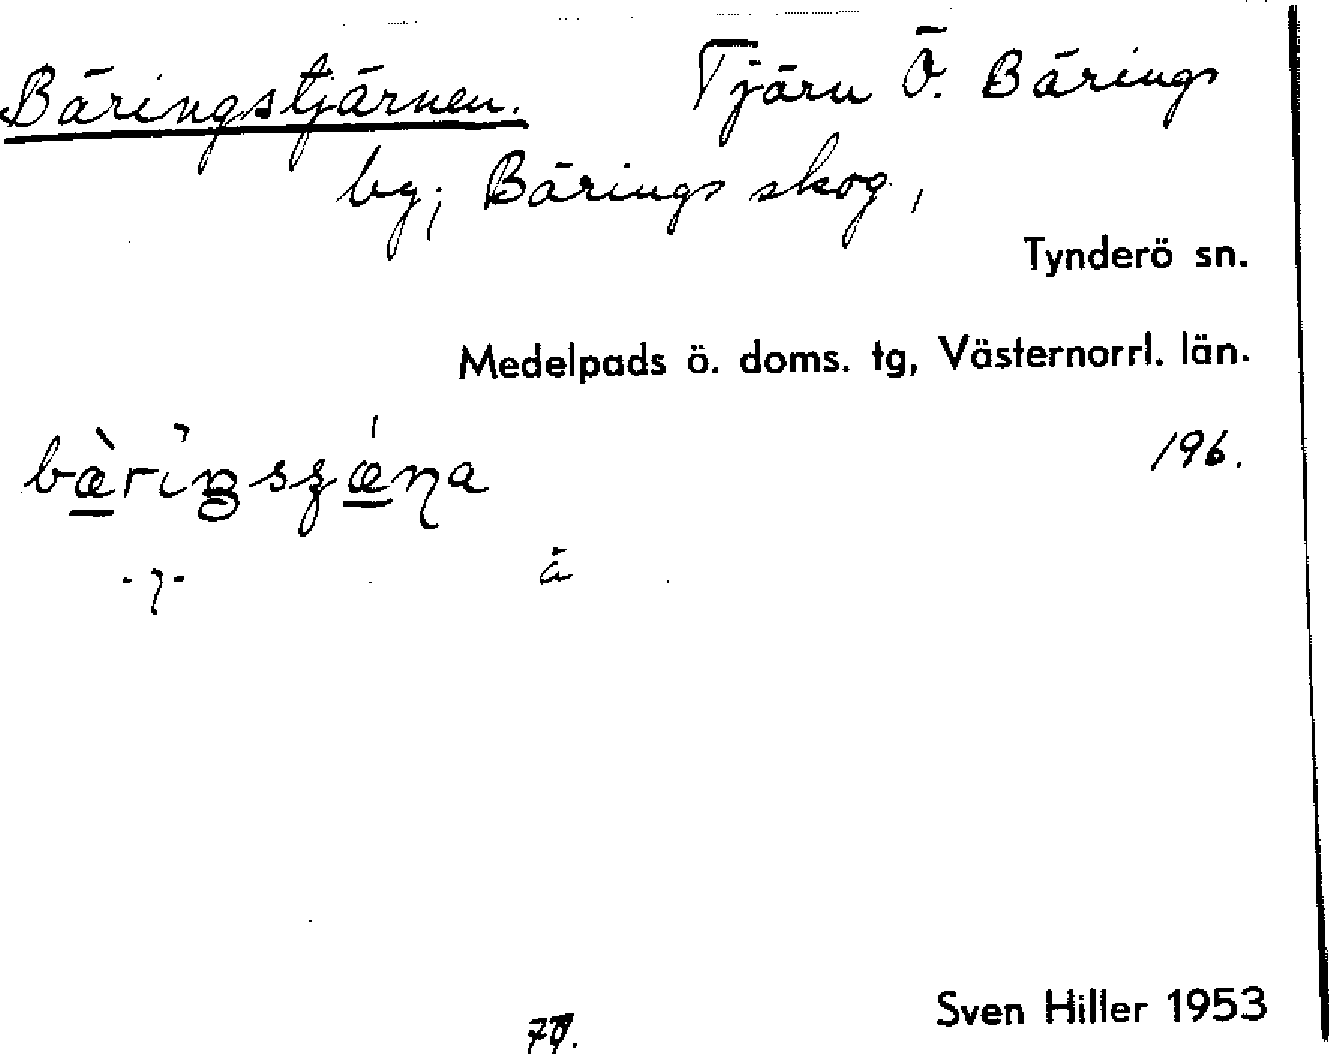 Bäringstjärnen. Tjärn Ö. Bärings
by; Bärings skog,
Tynderö sn.
Medelpads ö. doms. tg, Västernorrl. län.
196.
Sven Hiller 1953